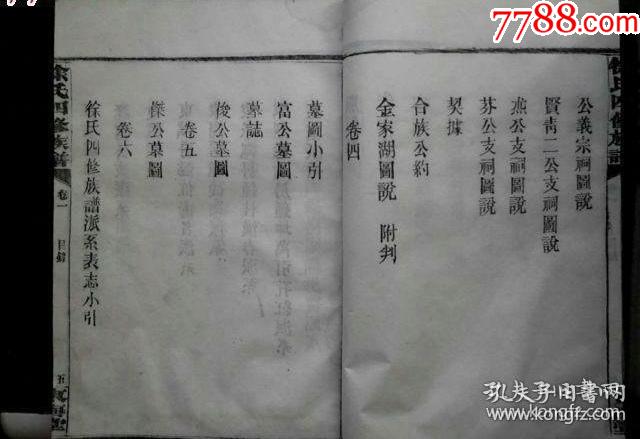 7788.com
公義宗祠圖說
賢靑二公支祠圖說
燕公支祠圖說
芬公支祠圖說
契據
合族公約
金家湖圖說 附判
卷四
墓圖小引
富公墓圖
墓誌
俊公墓圖
卷五
傑公墓圖
卷六
徐氏四修族譜派系表志小引
徐氏四修族譜
卷一
目錄
五
孔夫子旧书网
kongfz.com